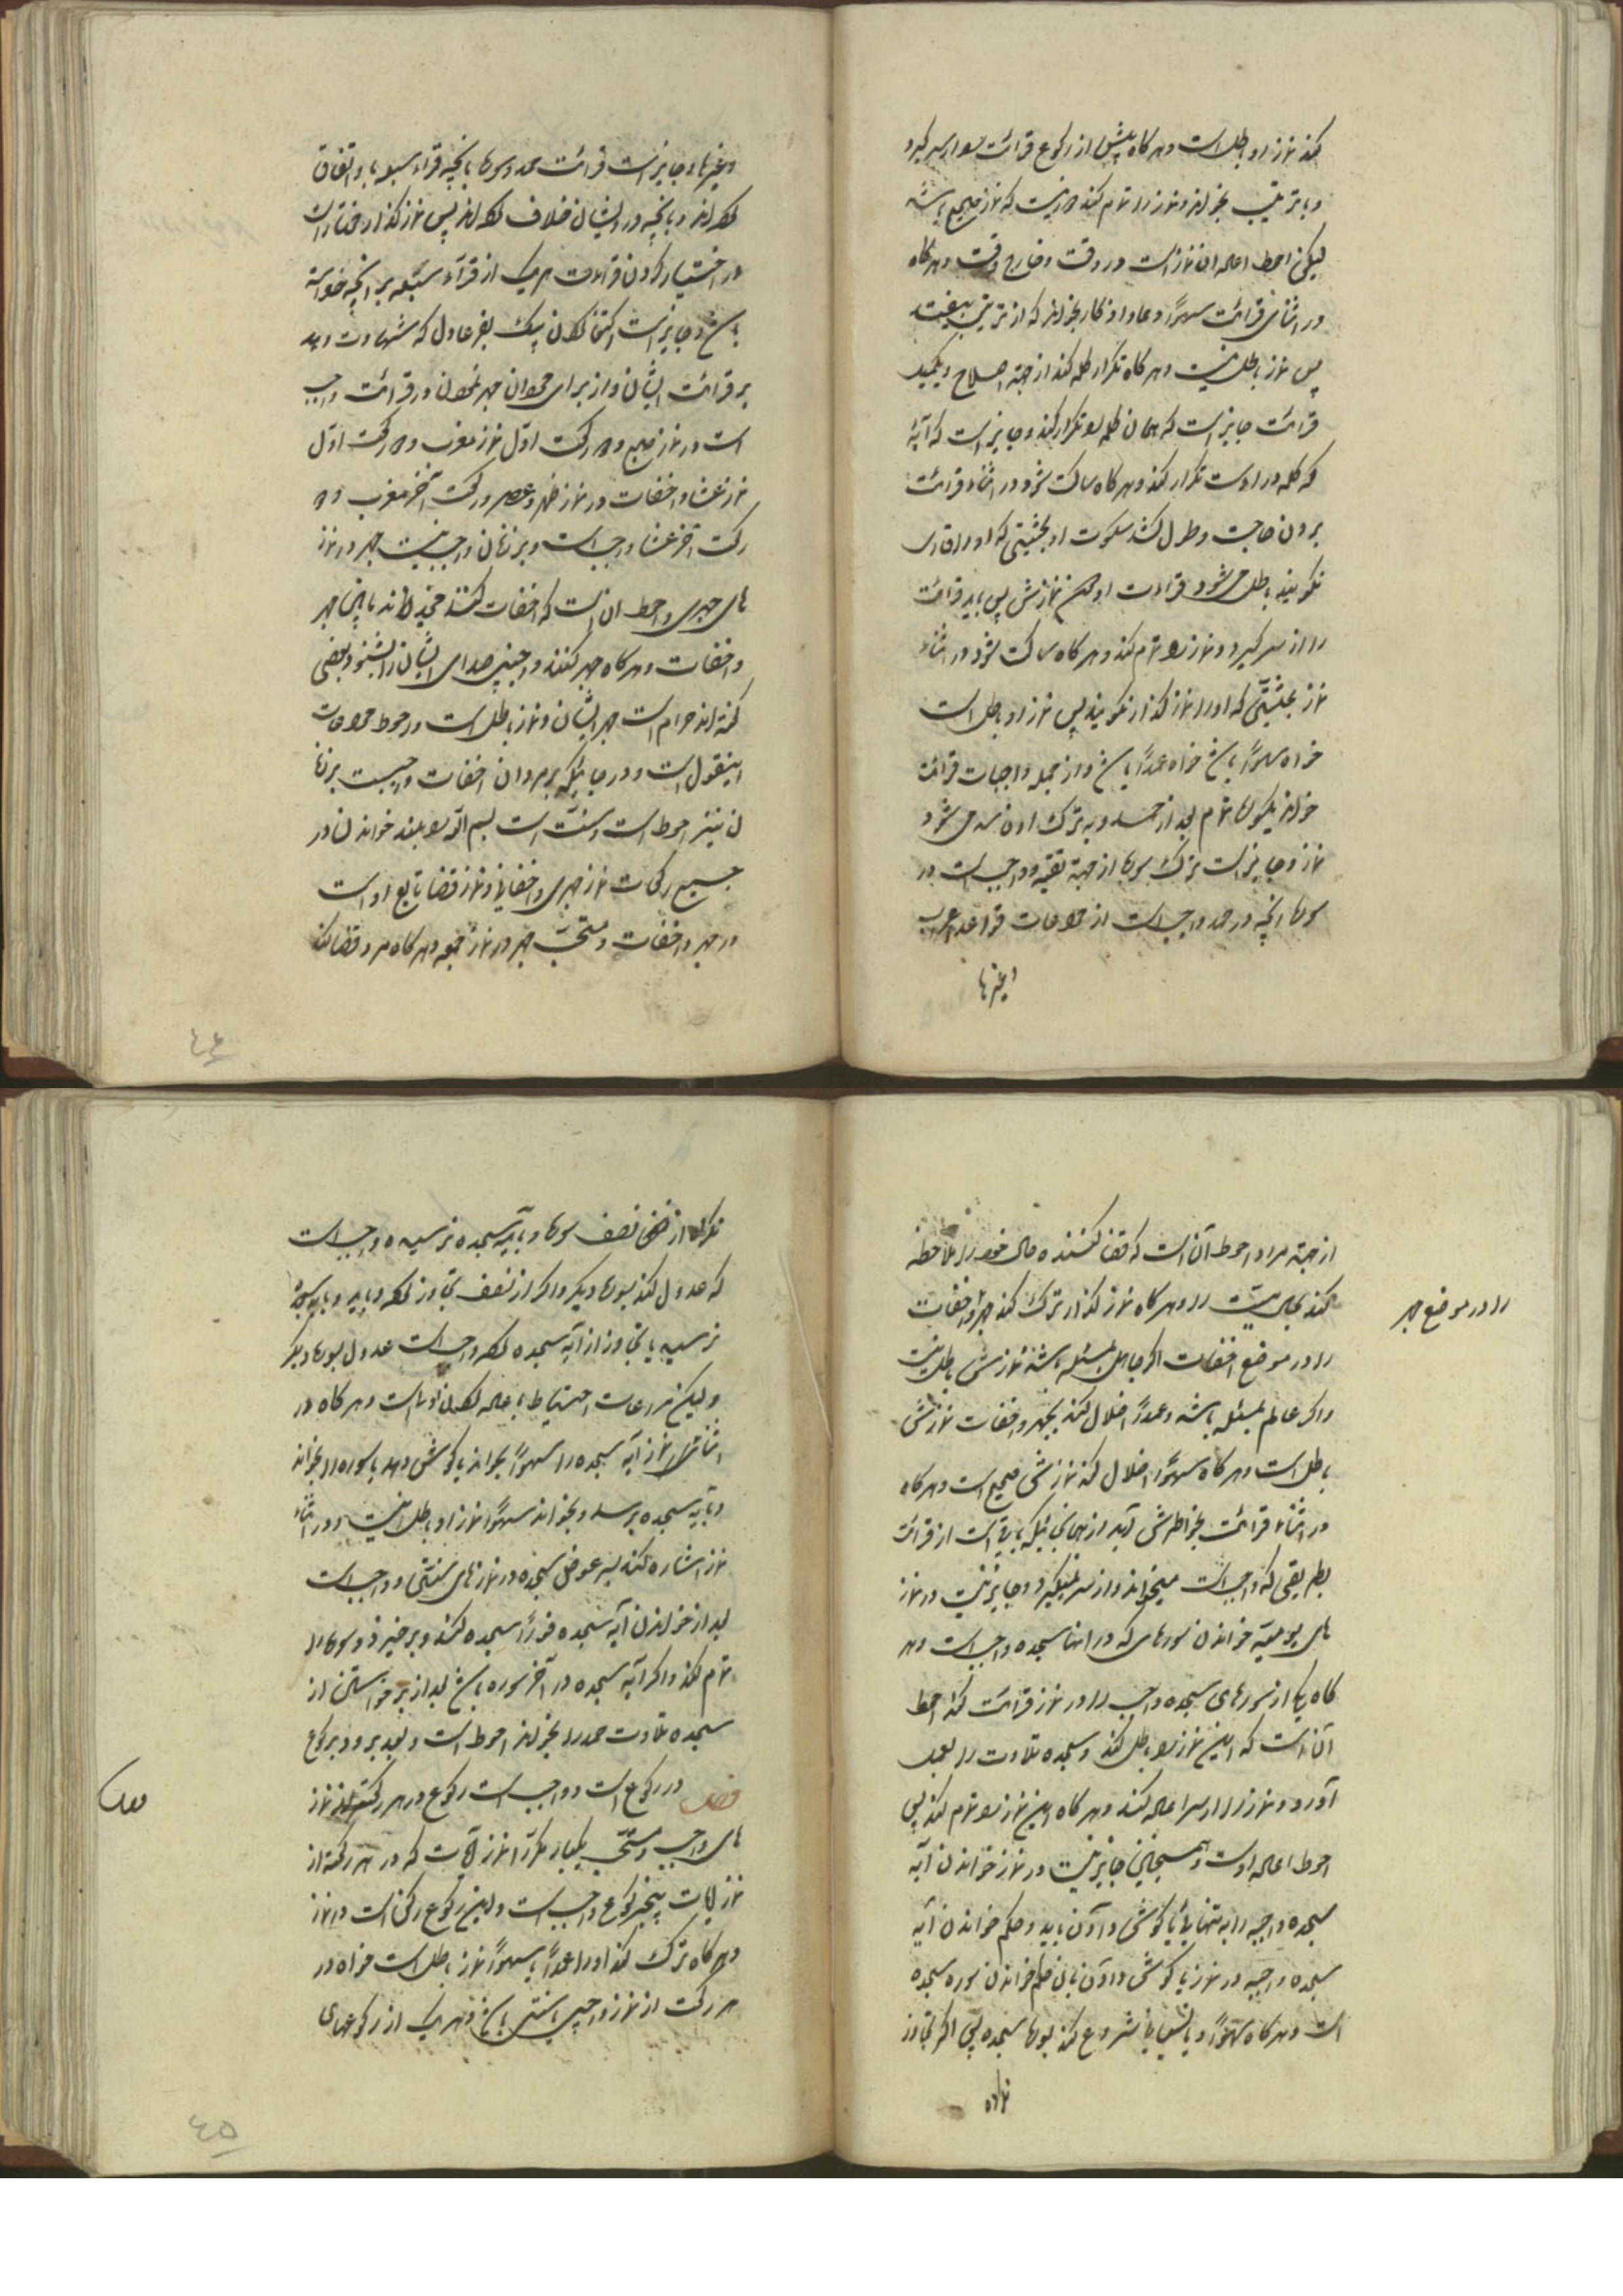 کند نماز او باطل است و هر کاه پیش از رکوع قرائت را از سر کیرد
و با ترتیب بخواند و نماز را تمام کند نماز صحیح باشد
لیکن احوط اعاده آن نماز است در وقت و خارج وقت و هر کاه
در اثنای قرائت سهواً دعا و اذکار بخواند که از ترتیب بیفتد
پس نماز باطل نیست و هر کاه تکرار کلمه کند از جهة اصلاح
قرائت جایز است که همان کلمه را تکرار کند و جایز است که آیهٔ
که کلمه در اوست تکرار کند و هر کاه ساکت شود در اثناء قرائت
بدون حاجت و طول کشد سکوت او بحیثیتی که او را قاری
نکویند باطل می شود قراءت او نمازش پس باید قرائت
را از سر کیرد و نماز را تمام کند و هر کاه ساکت شود در اثناء
نماز بحیثیتی که او را نماز کذار نکویند پس نماز او باطل است
خواه سهواً باشد خواه عمداً باشد و از جمله واجبات قرائت
خواندن سوره تمام بعد از حمد و به ترک او فاسد می شود
نماز و جایز است ترک سوره از جهة تقیه و واجب است در
سوره آنچه در حمد واجب است از مراعات قواعد اعراب
و غیرها
و غیرها و جایز است قرائت حمد و سوره بآنچه قراء سبعه با و اتفاق
کرده اند و بآنچه در او ایشان خلاف کرده اند پس نماز کذار مختار است
در اختیار کردن قراءت هر یک از قراء سبعه بر آنچه خواسته
باشد و جایز است اکتفا کردن بیک نفر عادل که شهادت دهد
بر قرائت ایشان و از برای مردان جهر نمودن در قرائت واجب
است در نماز صبح و دو رکعت اول نماز مغرب و دو رکعت اول
نماز عشا و اخفات در نماز ظهر و عصر و رکعت آخر مغرب و دو
رکعت آخر عشا واجب است و بر زنان واجب نیست جهر در نماز
های جهری و احوط آن است که اخفات کنند مخیراند میان جهر
و اخفات و هر کاه جهر کنند و اجنبی صدای ایشان را بشنود بعضی
کفته اند حرام است جهر ایشان و نماز باطل است و احوط مراعات
این قول است و در جائیکه بر مردان اخفات واجبست بر زنا
ن نیز احوط است و سنت است بسم الله را بلند خواندن در
جمیع رکعات نماز جهری و اخفاتی و نماز قضا تابع اداست
در جهر و اخفات و مستحب جهر در نماز جمعه و هر کاه مرد قضا کند
از جهة مرد احوط آن است که قضا کننده حال خود را ملاحظه
کند بجای میت را و هر کاه نماز کذار ترک کند جهر و اخفات
را در موضع جهر
را در موضع اخفات اکر جاهل بمسئله باشد نمازش باطل نیست
و اکر عالم بمسئله باشد و عمداً اخلال کند بجهر و اخفات نمازش
باطل است و هر کاه سهواً اخلال کند نمازش صحیح است و هر کاه
در اثناء قرائت بخاطرش آید از همانجائیکه باقی است از قرائت
بطریقی که واجب است میخواند و از سر نمیکیرد و جایز نیست در نماز
های یومیه خواندن سوره هائی که در آنها سجده واجب است و هر
کاه یکی از سورهای سجده واجب را در نماز قرائت کند احوط
آن است که این نماز را باطل کند و سجده تلاوت را بعمل
آورد و نماز را از سر اعاده کند و هر کاه این نماز را تمام کند پس
احوط اعاده اوست و همچنین جایز نیست در نماز خواندن آیه
سجده واجبه را به تنهائی یا کوش دادن باید و حکم خواندن آیه
سجده واجبه در نماز یا کوش دادن بآن حکم خواندن سوره سجده
است و هر کاه سهواً و یا نسیاناً شروع کند بسوره سجده پس اکر تجاوز
نکرده
نکرده از نصف سوره و بآیه سجده نرسیده واجب است
که عدول کند بسوره دیکر و اکر از نصف تجاوز کرده و بآیه سجده
نرسیده یا تجاوز از آیه سجده کرده واجب است عدول بسوره دیکر
و لیکن مراعات احتیاط باعاده کردن اولی است و هر کاه در
اثناء نماز آیه سجده را سهواً بخواند یا کوش دهد یا سوره را بخواند
و بآیه سجده برسد و بخواند سهواً نماز او باطل نیست و در اثناء
نماز اشاره کند بسر عوض سجده و در نمازهای سنتی واجب است
بعد از خواندن آیه سجده فوراً سجده کند و برخیزد و سوره را
تمام کند و اکر آیه سجده در آخر سوره باشد بعد از برخواستن از
سجده تلاوت حمد را بخواند احوط است و بعد برود برکوع
فصل در رکوع است و واجب است رکوع در هر رکعت از نماز
های واجب و مستحب یکبار مکر نماز آیات که در هر رکعة از
نماز آیات پنج رکوع واجب است و این رکوع رکن است در نماز
و هر کاه ترک کند او را عمداً یا سهواً نماز باطل است خواه در
هر رکعت از نماز واجبی یا سنتی باشد و هر یک از رکوعهای
٤٤
٤٥